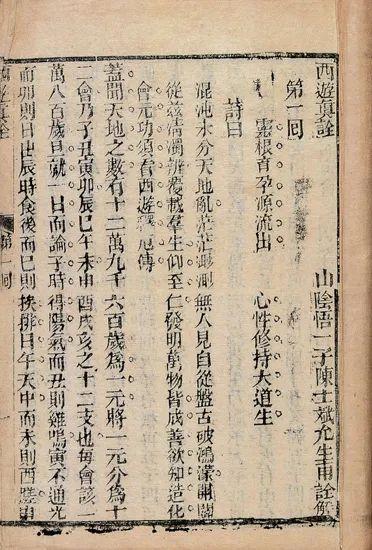 西遊真詮
山陰悟一子陳士斌允生甫詮解
第一回
靈根育孕源流出　心性修持大道生
詩曰
混沌未分天地亂茫茫渺渺無人見自從盤古破鴻蒙開闢
從茲清濁辨覆載羣生仰至仁發明萬物皆成善欲知造化
會元功須看西遊釋厄傳
蓋聞天地之數有十二萬九千六百歲爲一元將一元分爲十
二會乃子丑寅卯辰巳午未申酉戌亥之十二支也每會該一
萬八百歲且就一日而論子時得陽氣而丑則雞鳴寅不通光
而卯則日出辰時食後而巳則挨排日午天中而未則西蹉申
西遊真詮
第一回